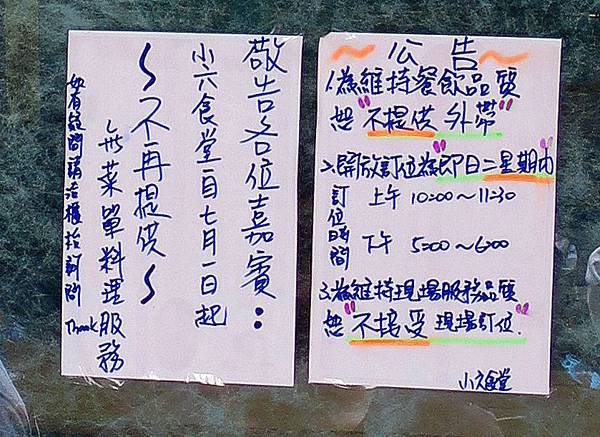 敬告各位嘉賓：
小六食堂自七月一日起
～不再提供～
無菜單料理服務
如有疑問請洽櫃抬訂問
Thank
～公告～
1.為維持餐飲品質
恕"不提供外帶"
2.開放訂位為"即日二星期內"
訂位時間
上午 10:00～11:30
下午 5:00～6:00
3.為維持現場服務品質
恕"不接受現場訂位"
小六食堂